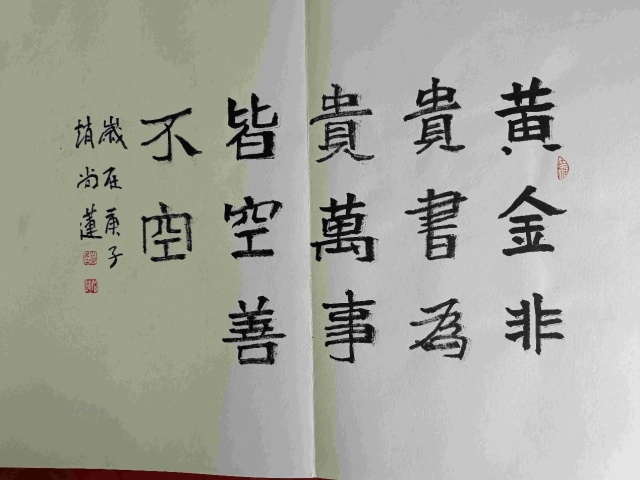 黄金非
貴書為
貴萬事
皆空善
不空
歲在庚子
趙尚蓮